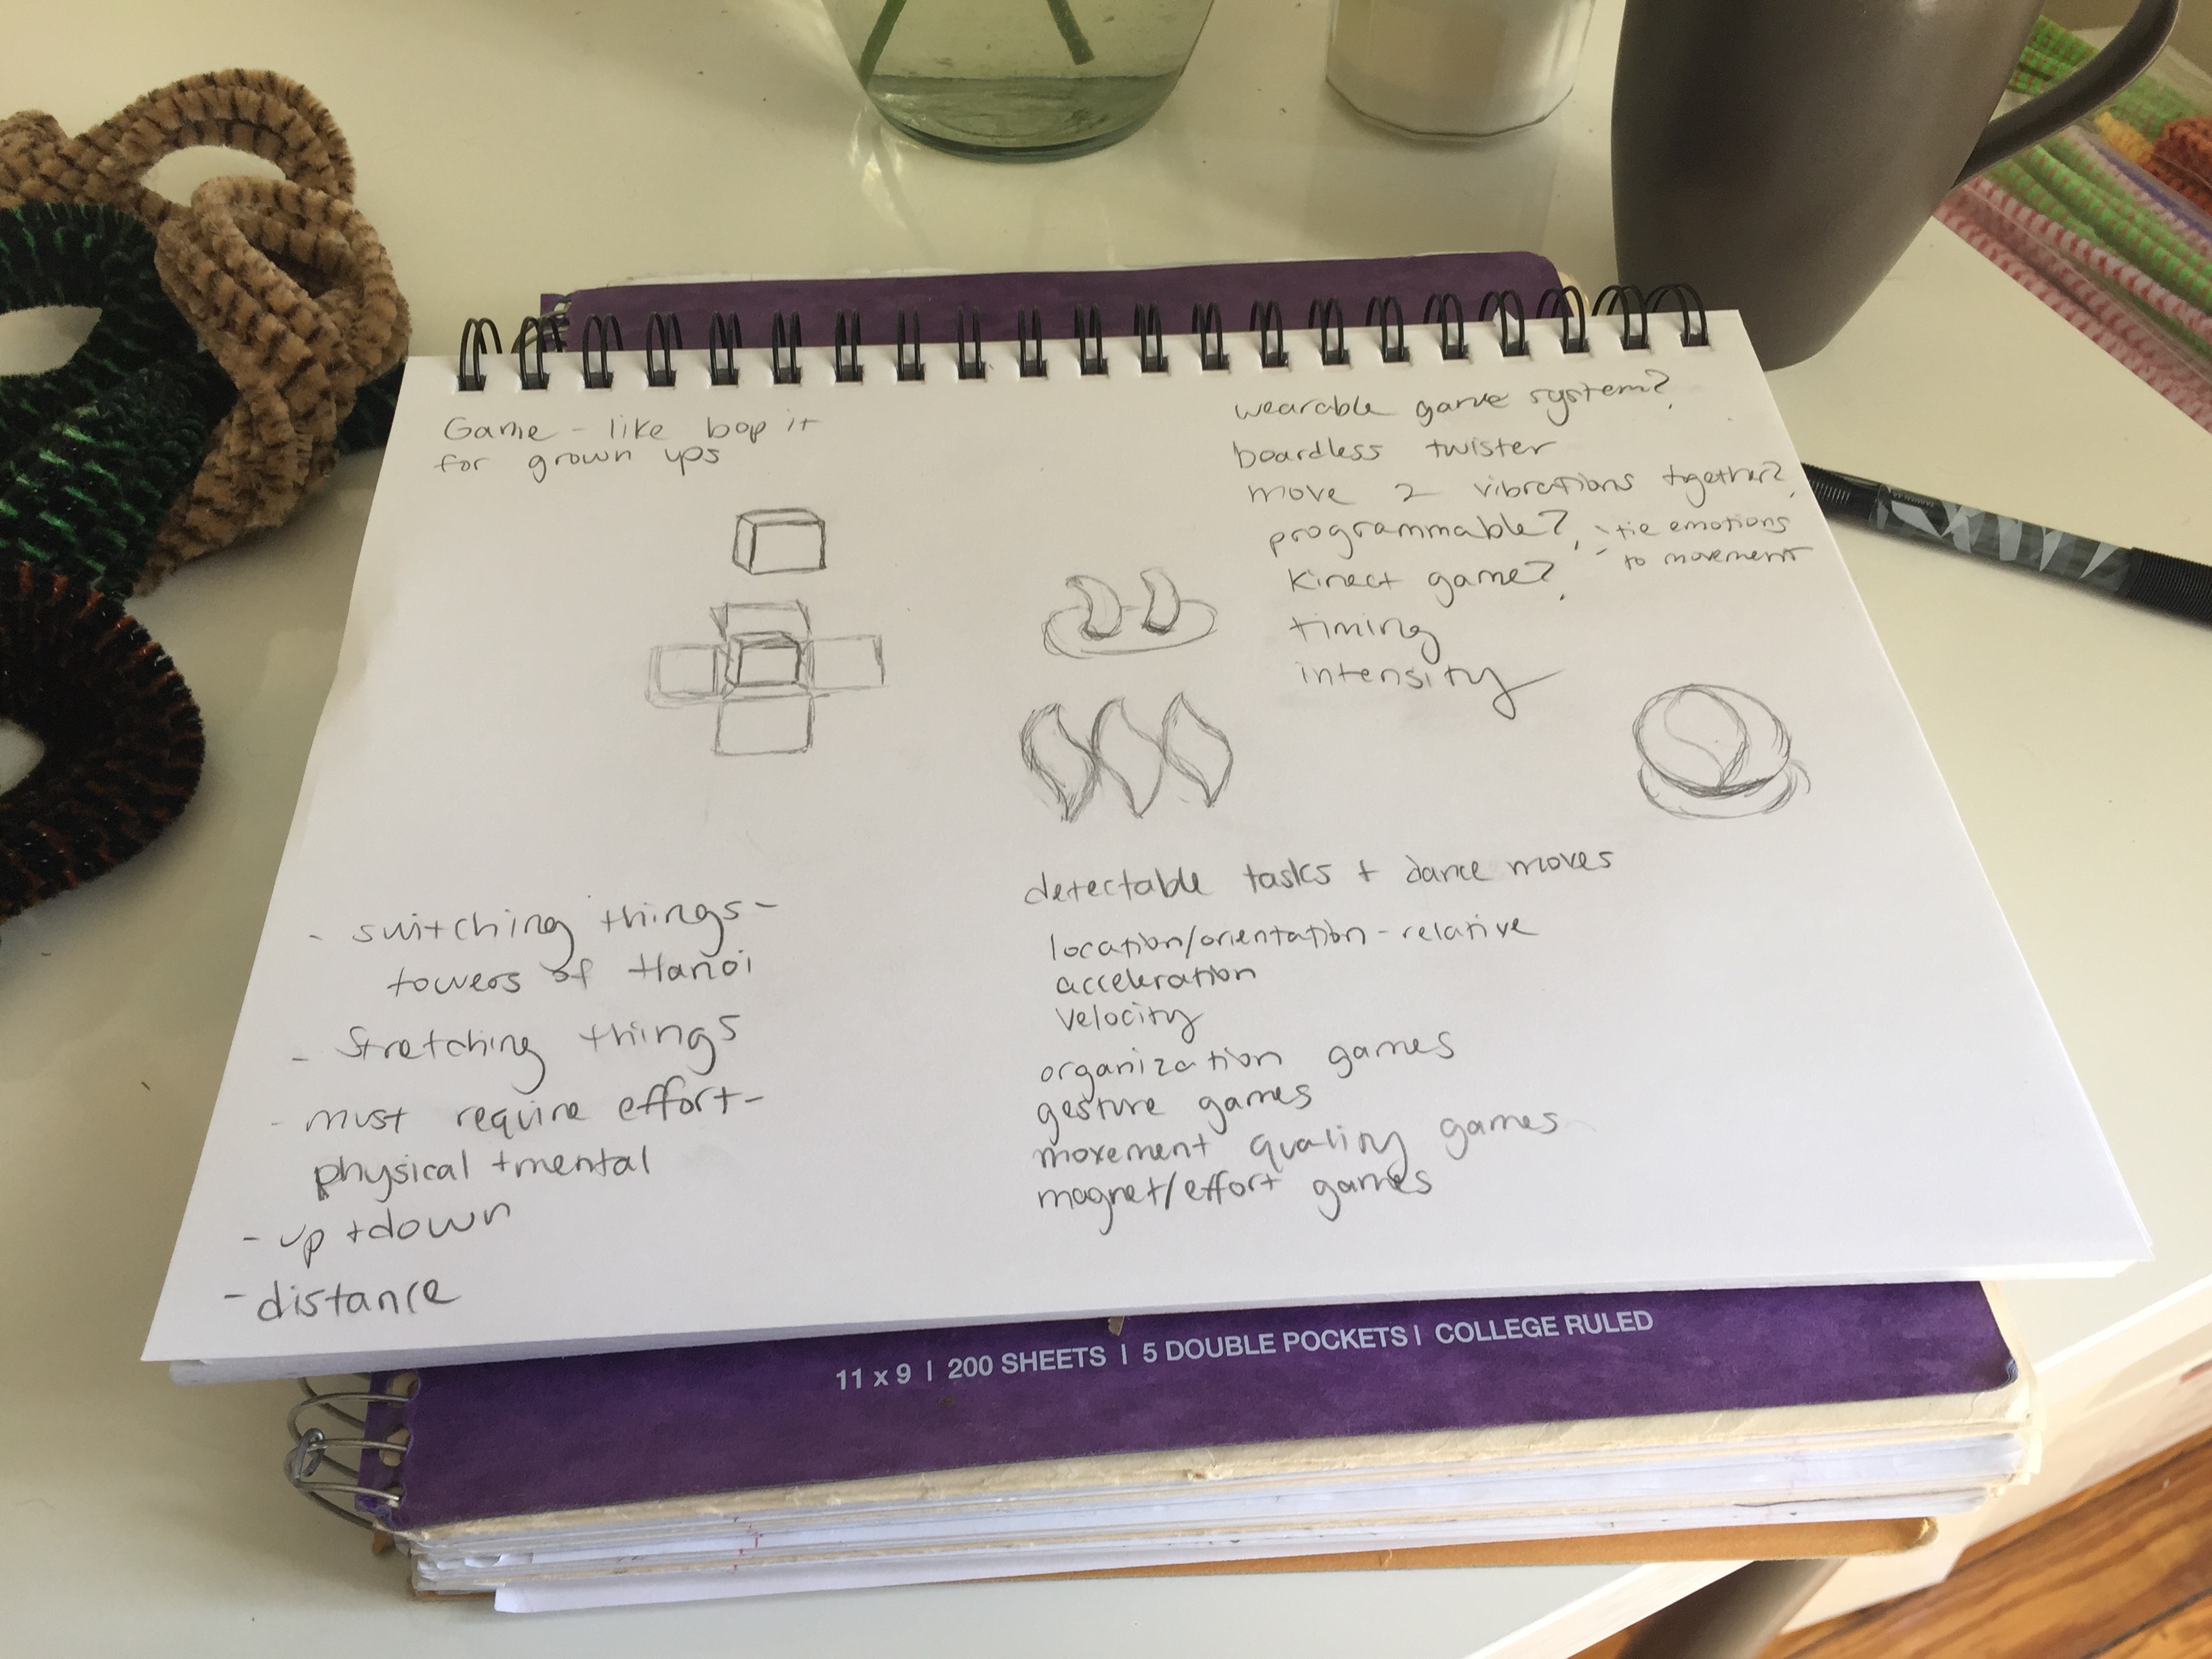 Game - like bop it
for grown ups
wearable game system?
boardless twister
move 2 vibrations together?
programmable?
- tie emotions
- to movement
kinect game?
timing
intensity
- switching things -
towers of Hanoi
- Stretching things
- must require effort -
physical + mental
- up + down
- distance
detectable tasks + dance moves
location/orientation - relative
acceleration
velocity
organization games
gesture games
movement quality games
magnet/effort games
11 x 9 | 200 SHEETS | 5 DOUBLE POCKETS | COLLEGE RULED